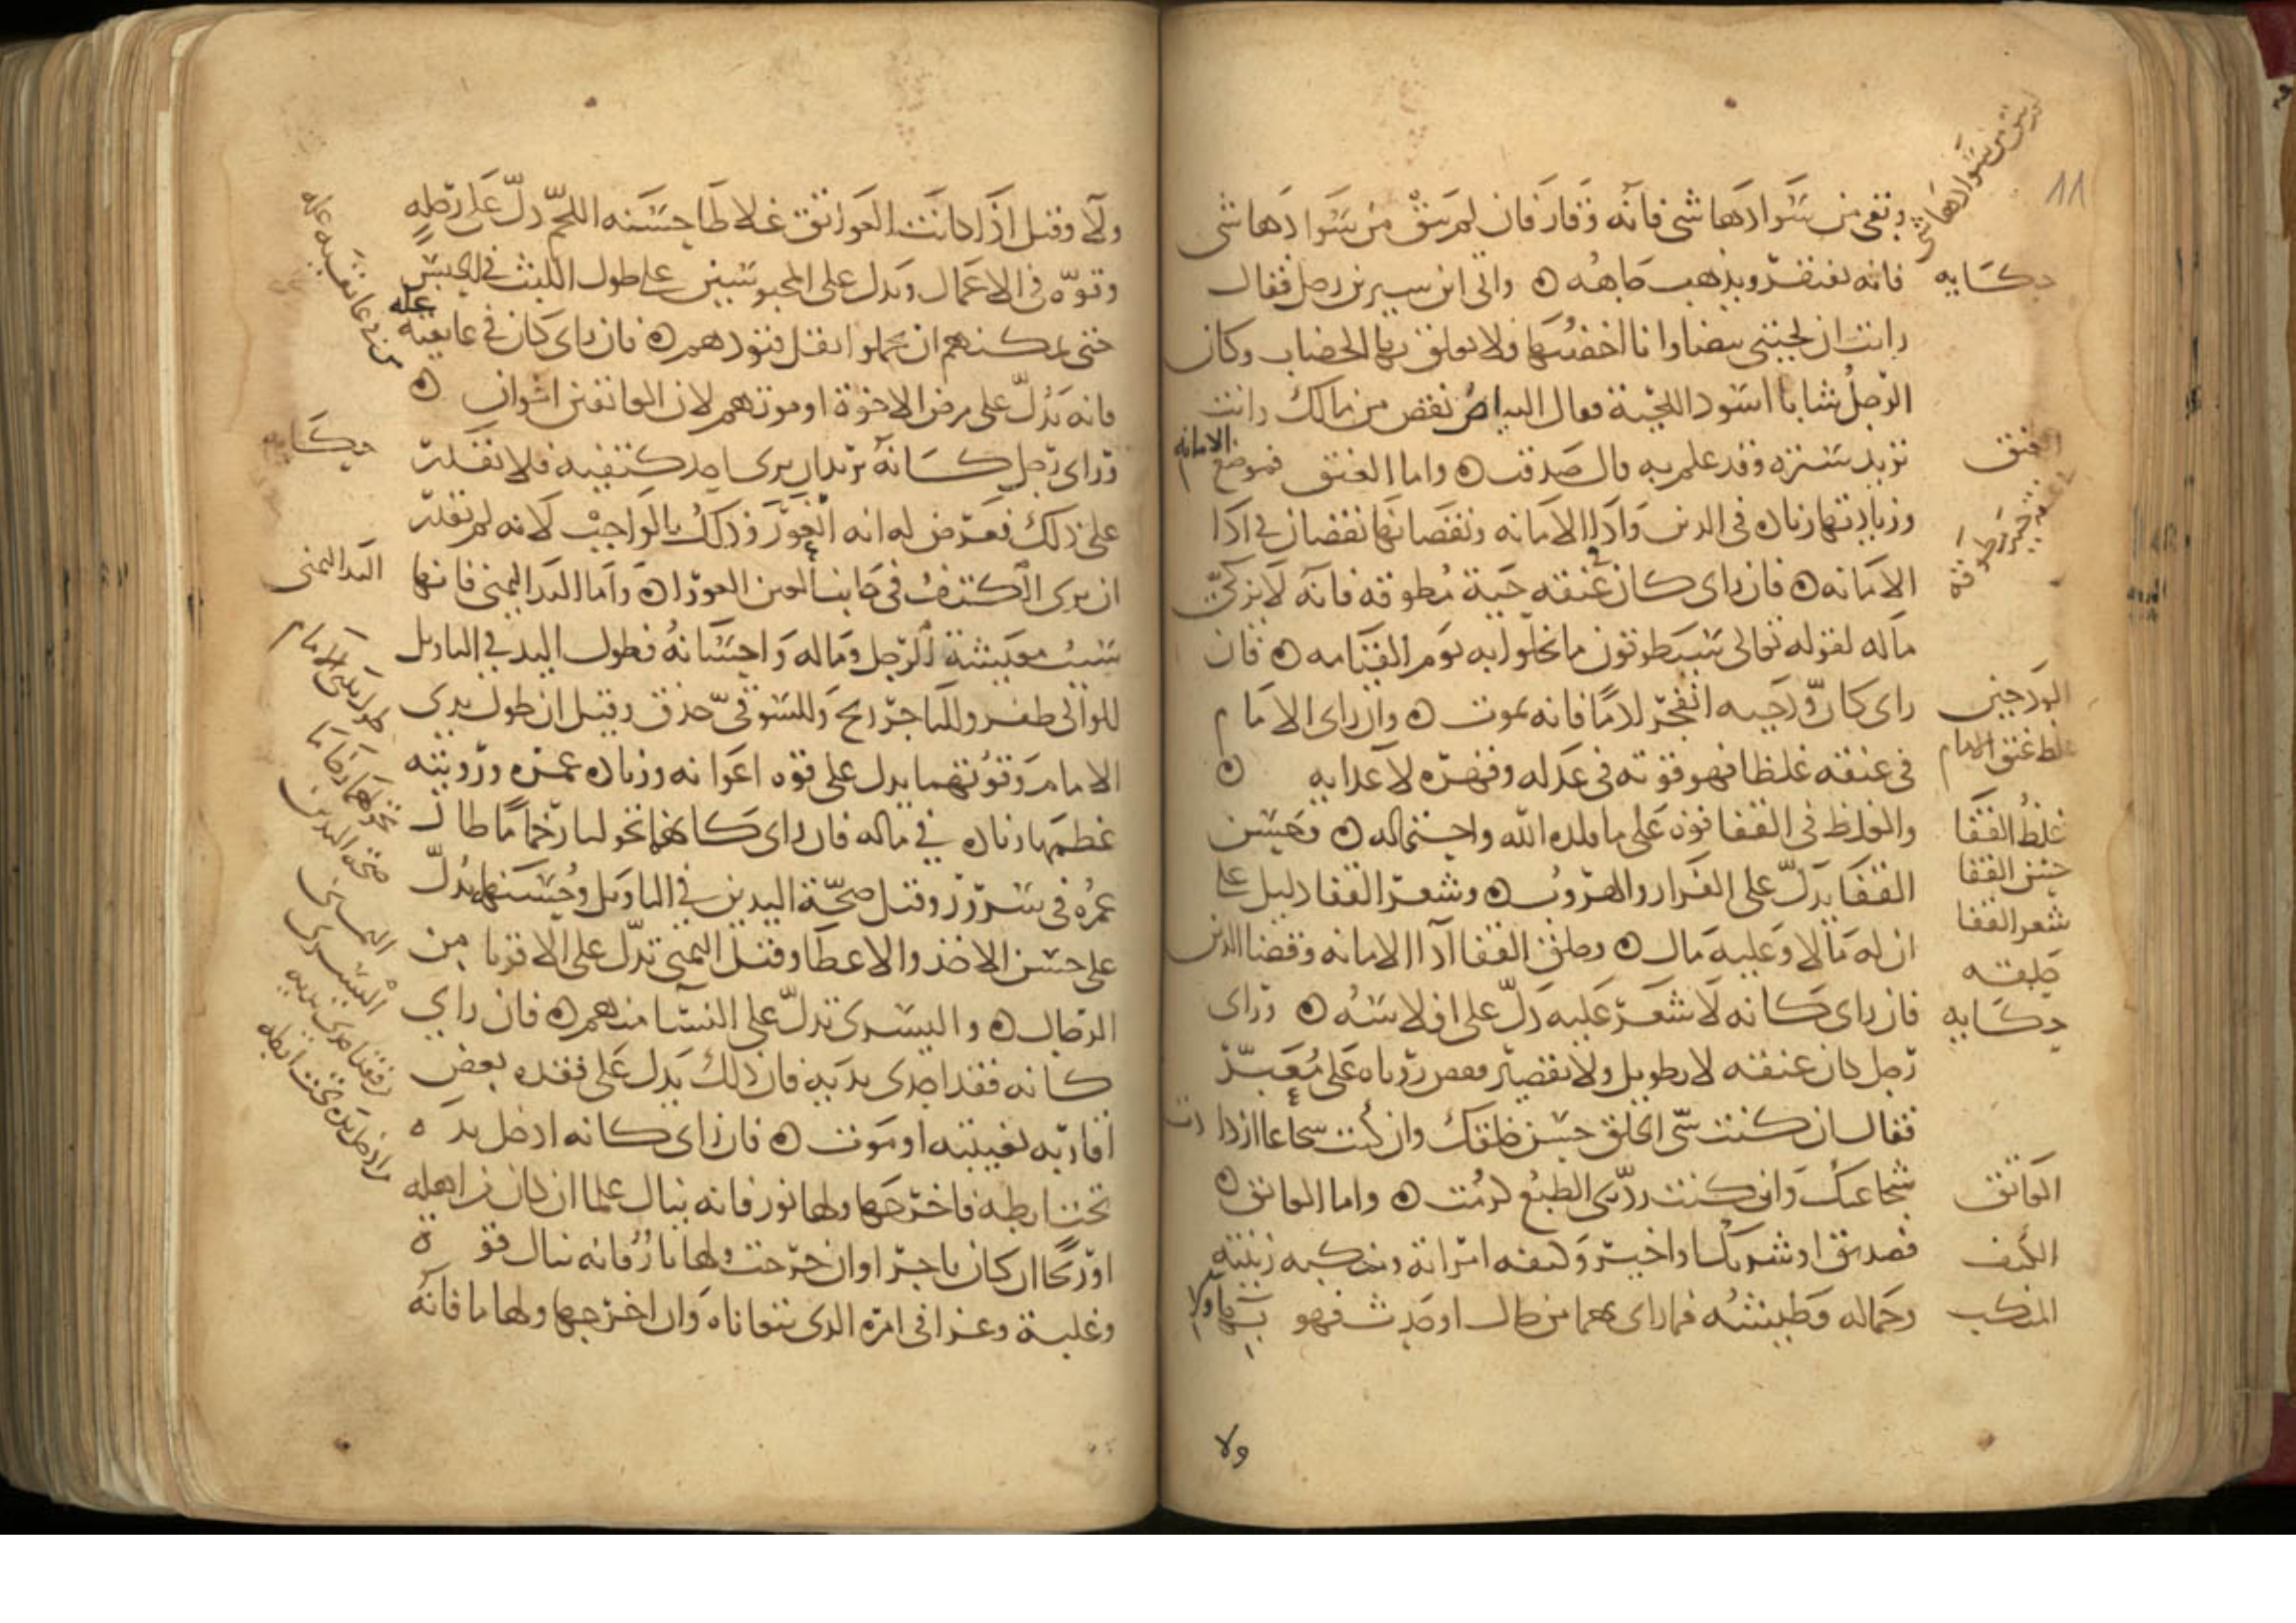 11
وبقى من سوادها شى فانه وقار فان لم يبق من سوادها شى
فانه يفتقر ويذهب جاهه ۞ واتى ابن سيرين رجل فقال
رايت ان لحيتى بيضا وانا اخضبها فلا يعلق بها الخضاب وكان
الرجل شابا اسود اللحية فقال البياض نقص من مالك وانت
تريد ستره وقد علم به قال صدقت ۞ واما العنق فموضع الامانه
وزيادتها زياده فى الدين وادا الامانه ونقصانها نقصان فى ادا
الامانه ۞ فان راى كان فى عنقه حية مطوقه فانه لا يزكى
ماله لقوله تعالى سيطوقون ما بخلوا به يوم القيامه ۞ فان
راى كان ودجيه انفجر ا دما فانه يموت ۞ وان راى الامام
فى عنقه غلظا فهو قوته فى عدله وقهره لاعدايه ۞
والغلظ فى القفا قوه على ما قلده الله واحتماله ۞ وحسن
القفا يدل على الفرار والهروب ۞ وشعر القفا دليل على
ان له مالا وعليه مال ۞ وحلق القفا ادا الامانه وقضا الدين
فان راى كانه لا شعر عليه دل على افلاسه ۞ وراى
رجل كان عنقه لا بطويل ولا بقصير فقص روياه على معبر
فقال ان كنت سى الخلق حسن خلقك وان كنت شجاعا ازدادت
شجاعتك وان كنت ردى الطبع كرمت ۞ واما العاتق ۞
فصديق او شريك او اجير وكتفه امراته ومنكبه زينته
وجماله وطيشه فما راى بهما من حال او حدث فهو بتهاولا
ولا
حكايه
عنق
الودجين
غلظ عنق الامام
غلظ القفا
حسن القفا
شعر القفا
حلقه
حكايه
العاتق
الكتف
المنكب
ولا وقيل اذا كانت العواتق غلاظا حسنه اللحم دل على رجله
وقوه فى الاعمال ويدل على المحبوسين على طول اللبث فى الحبس
حتى يمكنهم ان يحملوا ثقل قيودهم ۞ فان راى كان فى عاتقيه عله
فانه يدل على مرض الاخوة او موتهم لان العاتقين اخوان ۞
وراى رجل كانه يريد ان يرى احد كتفيه فلا يقدر
على ذلك فعرض له انه اعور وذلك بالواجب لانه لم يقدر
ان يرى الكتف فى جانب العين العورا ۞ واما اليد اليمنى فانها
سبب معيشة الرجل وماله واحسانه فطول اليد فى التاويل
للوالى ظفر وللتاجر ربح وللسوقى حذق وقيل ان طول يدى
الامام وقوتهما يدل على قوه اعوانه وزياده عمره ورويته
عظمها زياده فى ماله فان راى كانهما تحولتا رخاما طال
عمره فى سرور وقيل صحة اليدين فى التاويل وحسنها يدل
على حسن الاخذ والاعطا وقيل اليمنى تدل على الاقربا من
الرجال ۞ واليسرى تدل على النسا منهم ۞ فان راى
كانه فقد احدى يديه فان ذلك يدل على فقده بعض
اقاربه بغيبته او موت ۞ فان راى كانه ادخل يده
تحت ابطه فاخرجها ولها نور فانه ينال علما ان كان من اهله
او ربحا ان كان تاجرا وان خرجت ولها نار فانه ينال قوة
وغلبة وعزا فى امره الذى يتعاناه وان اخرجها ولها ما فانه
من فى عاتقيه عله
حكايه
اليد اليمنى
طول يدى الامام
تحولهما رخاما
صحه اليدين
اليمنى
اليسرى
فقد احدى يديه
ادخل يده تحت ابطه